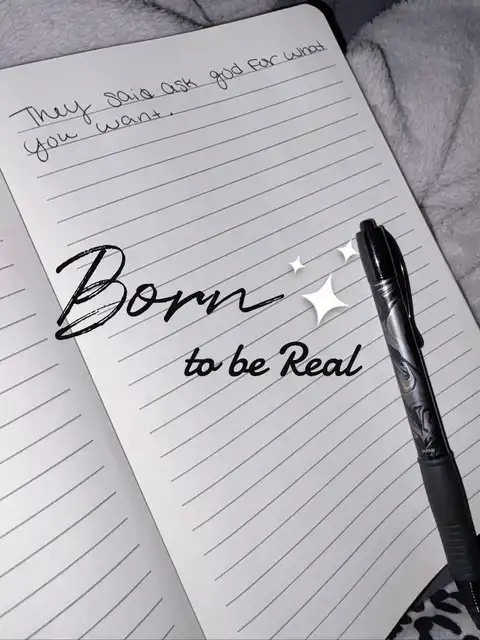 They said ask god for what
you want.
Born
to be Real
JAPAN